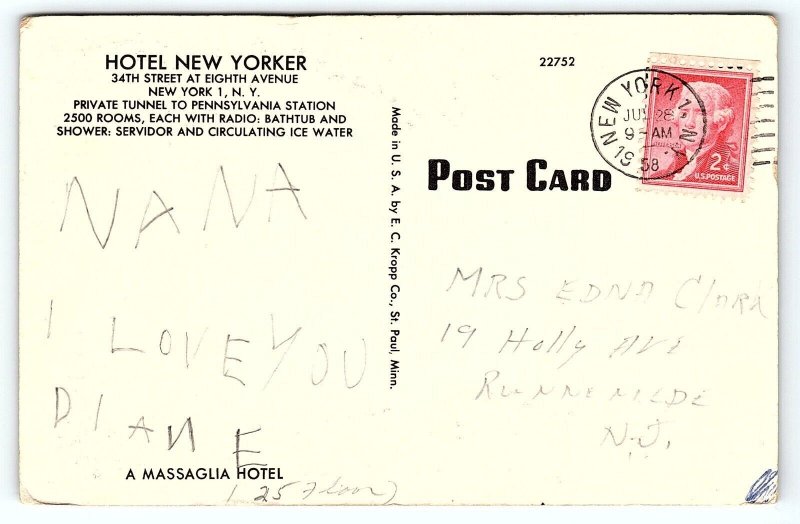 HOTEL NEW YORKER
34TH STREET AT EIGHTH AVENUE
NEW YORK 1, N. Y.
PRIVATE TUNNEL TO PENNSYLVANIA STATION
2500 ROOMS, EACH WITH RADIO: BATHTUB AND
SHOWER: SERVIDOR AND CIRCULATING ICE WATER
NANA
I LOVE YOU
DIANE
A MASSAGLIA HOTEL
(25 Floor)
Made in U. S. A. by E. C. Kropp Co., St. Paul, Minn.
22752
NEW YORK 1, N.Y.
JUL 28
9 AM
1958
2¢
U.S. POSTAGE
POST CARD
MRS EDNA Clark
19 Holly Ave
RUNNEMEDE
N.J.